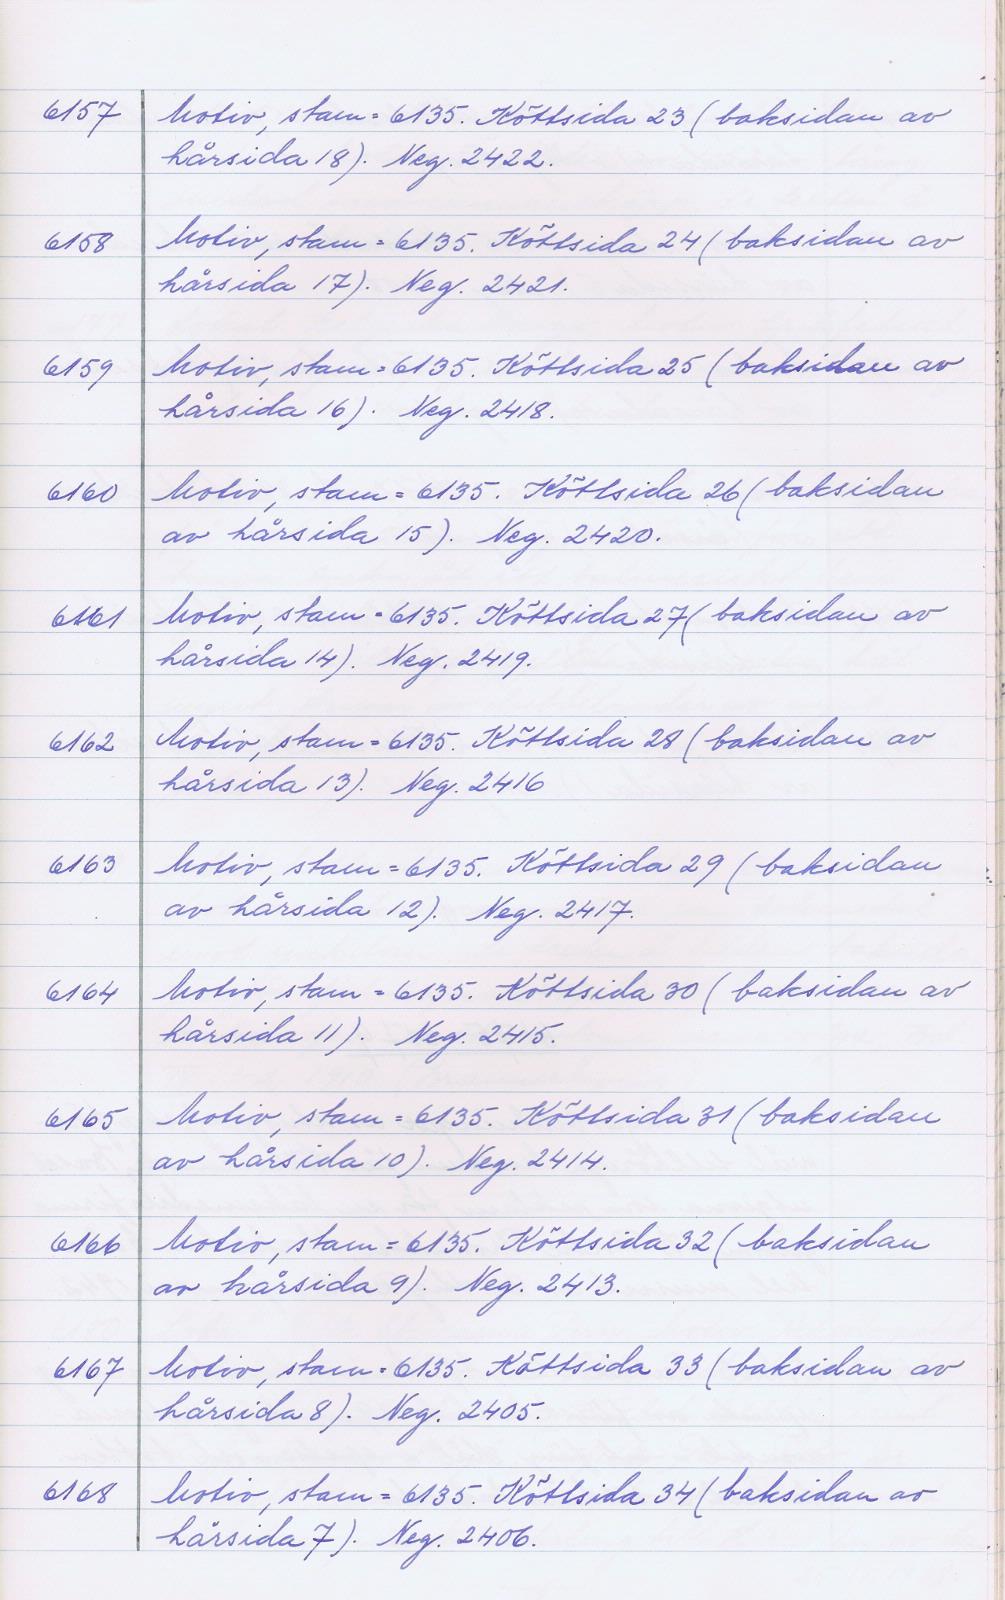 6157 Motiv, stam = 6135. Köttsida 23 (baksidan av
hårsida 18). Neg. 2422.
6158 Motiv, stam = 6135. Köttsida 24 (baksidan av
hårsida 17). Neg. 2421.
6159 Motiv, stam = 6135. Köttsida 25 (baksidan av
hårsida 16). Neg. 2418.
6160 Motiv, stam = 6135. Köttsida 26 (baksidan
av hårsida 15). Neg. 2420.
6161 Motiv, stam = 6135. Köttsida 27 (baksidan av
hårsida 14). Neg. 2419.
6162 Motiv, stam = 6135. Köttsida 28 (baksidan av
hårsida 13). Neg. 2416
6163 Motiv, stam = 6135. Köttsida 29 (baksidan
av hårsida 12). Neg. 2417.
6164 Motiv, stam = 6135. Köttsida 30 (baksidan av
hårsida 11). Neg. 2415.
6165 Motiv, stam = 6135. Köttsida 31 (baksidan
av hårsida 10). Neg. 2414.
6166 Motiv, stam = 6135. Köttsida 32 (baksidan
av hårsida 9). Neg. 2413.
6167 Motiv, stam = 6135. Köttsida 33 (baksidan av
hårsida 8). Neg. 2405.
6168 Motiv, stam = 6135. Köttsida 34 (baksidan av
hårsida 7). Neg. 2406.